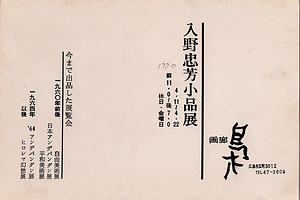 入野忠芳小品展
1970
4・11〜4・22
前11・0〜後7・0
休日・金曜日
画廊
鳥木
広島市立町3612
TEL 47-3609
今まで出品した展覧会
一九六〇年前後
自由美術展
平和美術展
日本アンデパンダン展
一九六四年以後
'64 アンデパンダン展
ヒロシマ幻想展